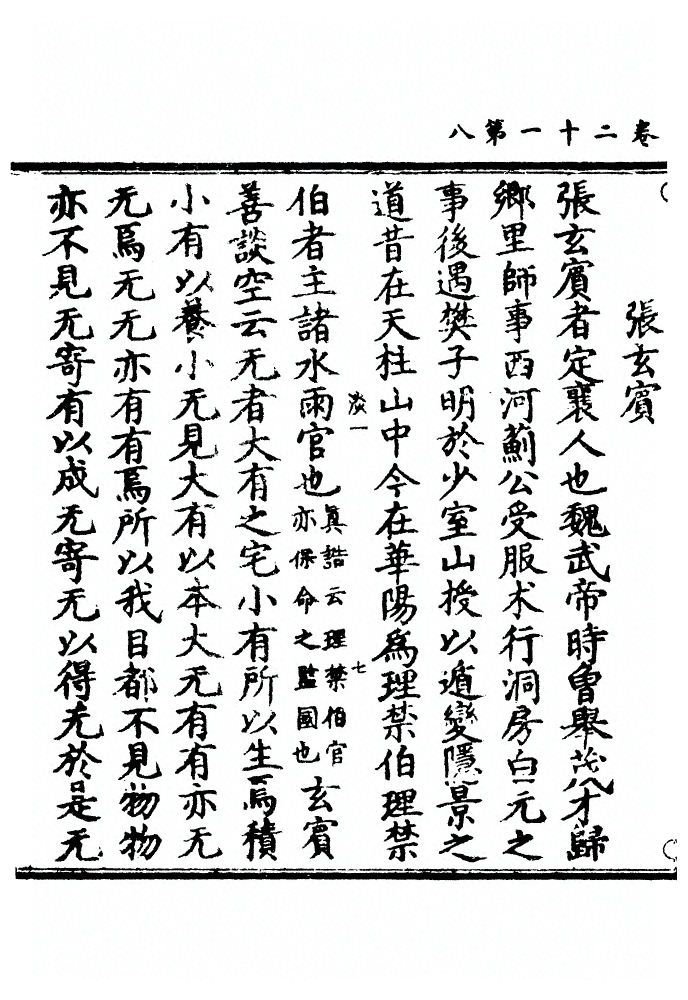 卷二十一第八
張玄賓
張玄賓者定襄人也魏武帝時曾舉茂才歸
鄉里師事西河薊公受服术行洞房白元之
事後遇樊子明於少室山授以遁變隱景之
道昔在天柱山中今在華陽爲理禁伯理禁
伯者主諸水雨官也真誥云理禁伯官亦保命之監國也玄賓
善談空云无者大有之宅小有所以生焉積
小有以養小无見大有以本大无有有亦无
无焉无无亦有有焉所以我目都不見物物
亦不見无寄有以成无寄无以得无於是无
七